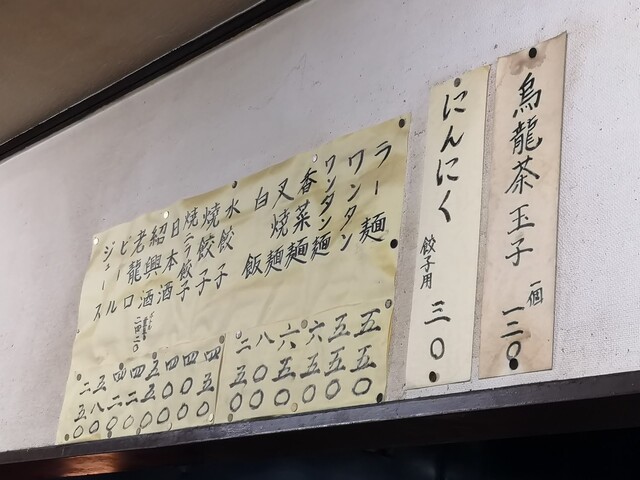 烏龍茶玉子 一個 一二〇
にんにく 餃子用 三〇
ラー麺 五五〇
ワンタン 五五〇
ワンタン麺 六五〇
香菜麺 六五〇
叉焼麺 八〇〇
白飯 二五〇
水餃子 四五〇
焼餃子 四〇〇
焼ニラ餃子 四〇〇
日本酒 五五〇
紹興酒 四二〇
老龍口 四二〇
ビール 五八〇
ジュース 二五〇